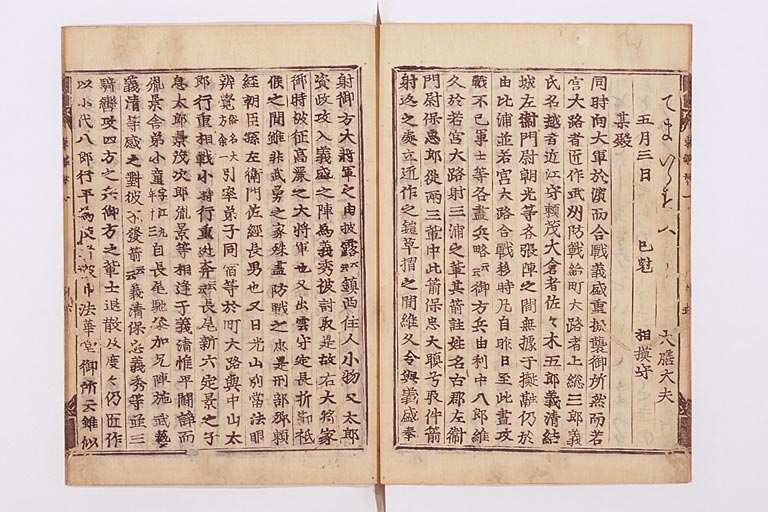 五月三日　巳尅　大膳大夫
某殿　相模守
同時向大軍於濱而合戰義盛重擬襲御所然而若
宮大路者匠作武刕防戰給町大路者上総三郎義
氏名越者近江守頼茂大倉者佐々木五郎義清結
城左衛門尉朝光等各張陣之間無據于擬融仍於
由比浦並若宮大路合戰移時凡自昨日至此晝攻
戰不已軍士等各盡兵略云云御方兵由利中八郎維
久於若宮大路射三浦之輩其箭註姓名古郡左衛
門尉保忠郎從兩三輩中此箭保忠大瞋兮取件箭
射返之處立匠作之鎧草摺之間維久令與義盛奉
射御方大將軍之由披露云云鎮西住人小物又太郎
資政攻入義盛之陣為義秀被討取是故右大將家
御時被征高麗之大將軍也又出雲守定長折節祗
候之間雖非武勇之家殊盡防戰之忠是刑部卿頼
經朝臣孫左衛門佐經長男也又日光山別當法眼
辨覺俗名大方余一引率弟子同宿等於町大路與中山太
郎行重相戰小時行重逃奔云云長尾新六定景之子
息太郎景茂次郎胤景等相逢于義清惟平鬪諍而
胤景舎弟小童字江丸年十三自長尾馳參加兄陣施武藝
義清等感之對彼不發箭云云義清保忠義秀等並三
騎轡攻四方之兵御方之軍士退散及度々仍匠作
以小代八郎行平為使者被申法華堂御所云雖似